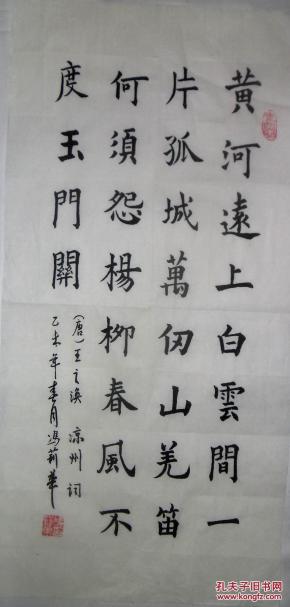 黃河遠上白雲間一
片孤城萬仞山羌笛
何須怨楊柳春風不
度玉門關
(唐)王之涣 凉州词
乙未年春月冯莉華
孔夫子旧书网